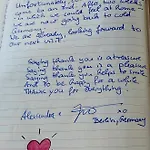 Unfortunately,
After two weeks
in which we came
we are now going back to cold
Germany.
We are already looking forward to
our next visit.
Saying thank you is a pleasure
Saying thank you is a pleasure
Saying thank you, helps to smile
And to be happy for a while
Thank you for everything.
Alexander &
Berlin, Germany